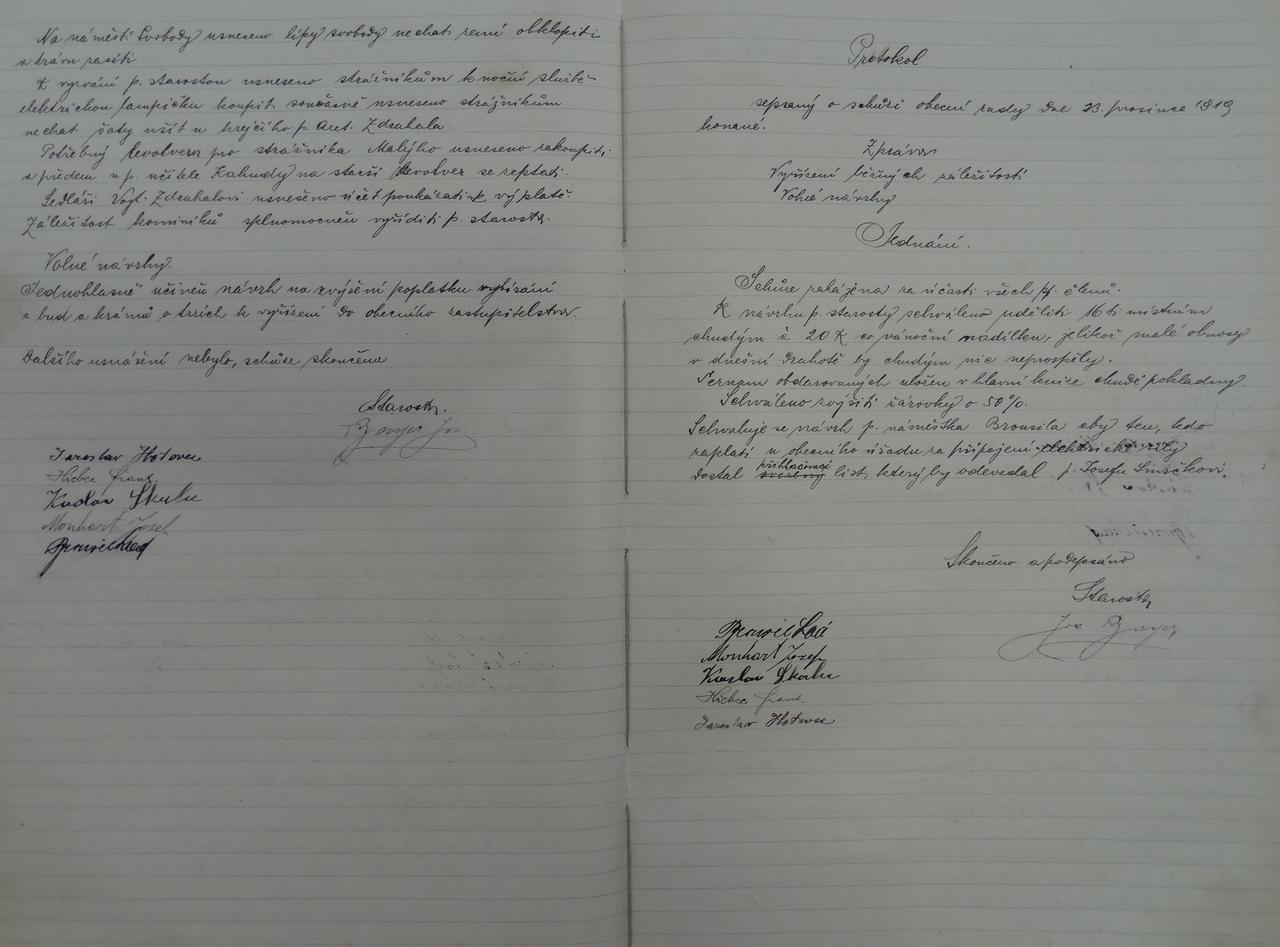 Na náměstí Svobody usneseno lípy svobody nechat zemí obklopiti
a trávu zasíti
K vyzvání p. starostou usneseno strážníkům k noční službě
elektrickou lampičku koupit současně usneseno strážníkům
nechat šaty ušít u krejčího p. Ant. Zdrahala.
Potřebný revolver pro strážníka Malýho usneseno zakoupiti,
a předem u p. učitele Kahudy na starší revolver se zeptati.
Sedláři Vojt. Zdrahalovi usneseno účet poukázati k výplatě.
Záležitost kominíků splnomocněn vyříditi p. starosta.
Volné návrhy.
Jednohlasně učiněn návrh na zvýšení poplatku vybírání
z bud a krámů o trzích k vyřízení do obecního zastupitelstva.
Dalšího usnášení nebylo, schůze skončena
Starosta.
Jaroslav Hotovec
Franc
Skuhr
Monhart Josef
Protokol
sepsaný o schůzi obecní rady dne 23. prosince 1919
konané.
Zpráva
Vyřízení běžných záležitostí
Volné návrhy
Jednání.
Schůze zahájena za účasti všech členů.
K návrhu p. starosty schváleno uděliti 16ti místním
chudým à 20 K co vánoční nadílku, jelikož malé obnosy
v dnešní drahotě by chudým nic neprospěly.
Seznam obdarovaných uložen v hlavní knize chudé pokladny.
Schváleno zvýšiti žárovky o 50%.
Schvaluje se návrh p. náměstka Brousila aby ten, kdo
zaplatí u obecního úřadu za připojení elektrické síly
dostal přihlašovací list, který by odevzdal p. Josefu
Skončeno a podepsáno
Starosta
Jos
Monhart Josef
Skuhr
Franc.
Jaroslav Hotovec